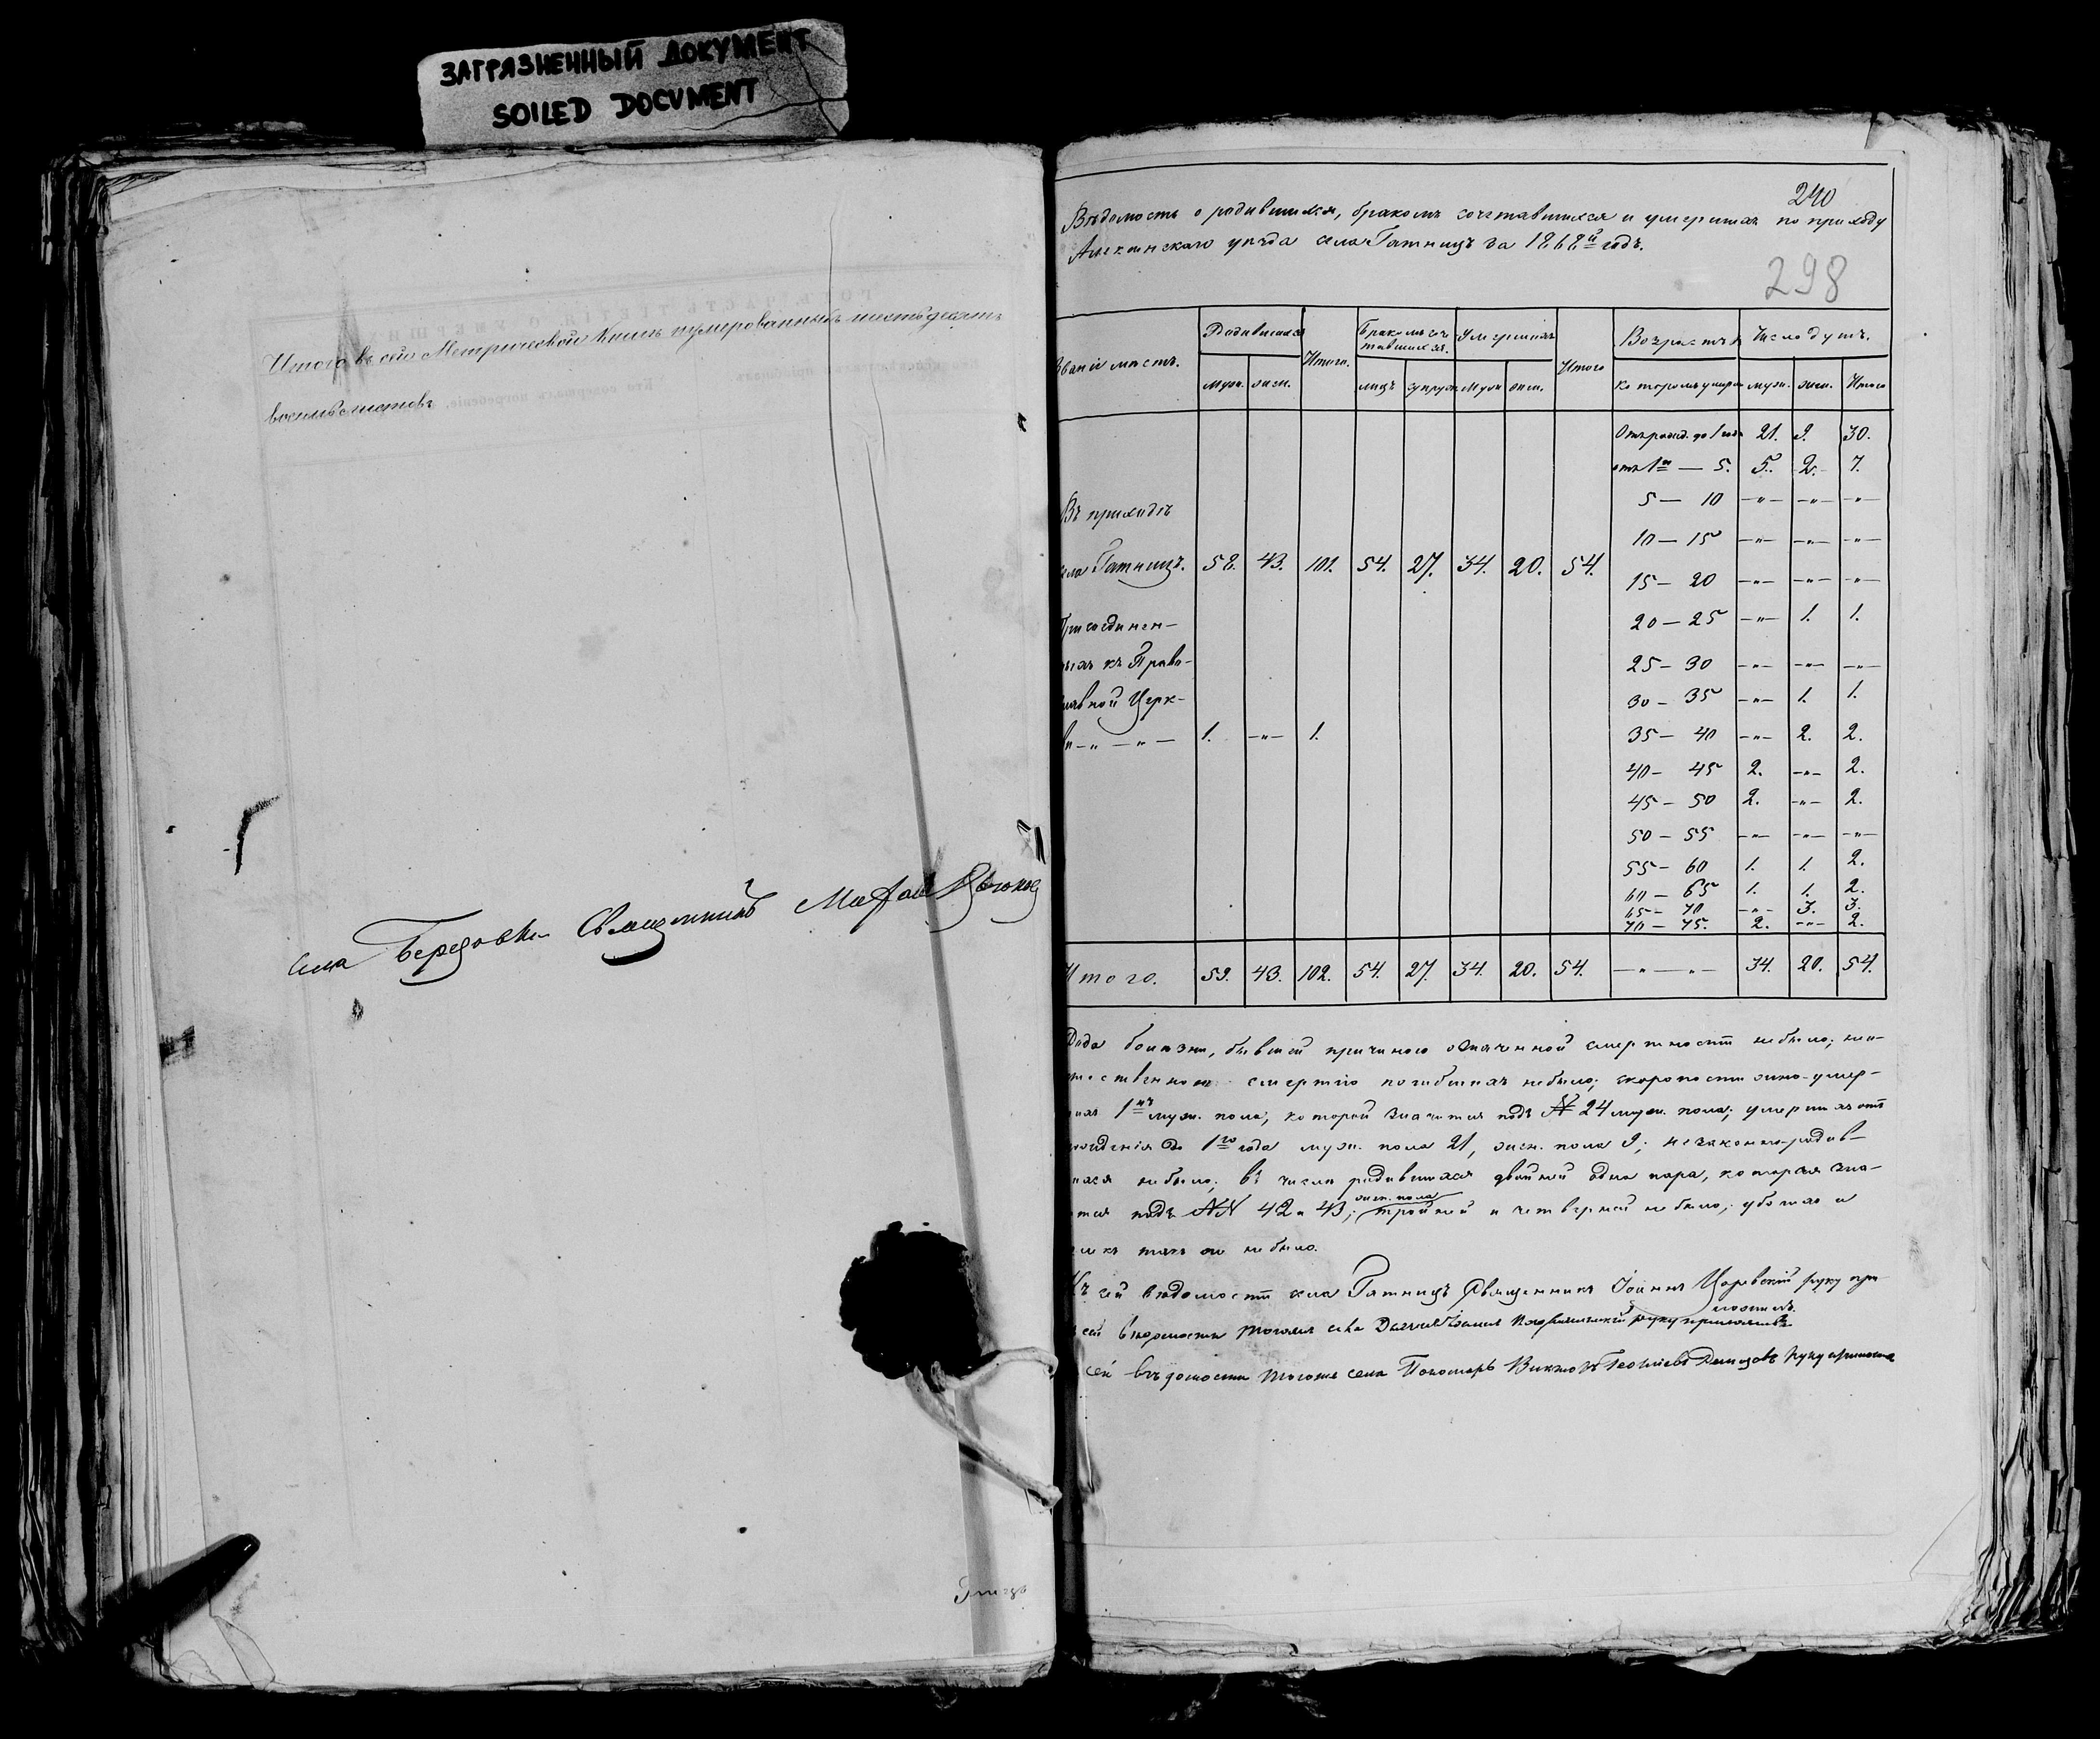 ЗАГРЯЗНЕННЫЙ ДОКУМЕНТ
SOILED DOCUMENT
Итого въ сей Метрической книгѣ нумерованныхъ шестьдесятъ
восемь листовъ
села Березовки Священникъ
240
Вѣдомость о родившихся, бракомъ сочетавшихся и умершихъ по приходу
Алексинскаго уѣзда села Пятницъ за 1868й годъ.
298
Родившихся Бракомъ соче- Умершихъ Возрастъ въ Число душъ.
званіе мѣстъ. Итого. тавшихся. Итого
муж. жен. лицъ супруж муж жен. которомъ умерли муж. жен. Итого
Отъ рожд. до 1 года 21. 9. 30.
отъ 1го — 5. 5. 2. 7.
5 — 10 -"- -"- -"-
Въ приходѣ
10 — 15 -"- -"- -"-
села Пятницъ. 58. 43. 101. 54. 27. 34. 20. 54.
15 — 20 -"- -"- -"-
Присоединен-
20 — 25 -"- 1. 1.
ныхъ къ Право-
25 — 30 -"- -"- -"-
славной Церк-
30 — 35 -"- 1. 1.
ви -"- -"- 1. -"- 1.
35 — 40 -"- 2. 2.
40 — 45 2. -"- 2.
45 — 50 2. -"- 2.
50 — 55 -"- -"- -"-
55 — 60 1. 1. 2.
60 — 65 1. 1. 2.
65 — 70 -"- 3. 3.
70 — 75. 2. -"- 2.
Итого. 59. 43. 102. 54. 27. 34. 20. 54. -"- -"- 34. 20. 54.
Рода болѣзни, бывшей причиною означенной смертности не было; нее-
стественною смертію погибшихъ не было; скоропостижно-умер-
шихъ 1нъ муж. пола, которой значится подъ № 24 муж. пола; умершихъ отъ
рожденія до 1го года муж. пола 21, жен. пола 9; незаконно-родив-
шихся не было; въ числѣ родившихся двойней одна пара, которая зна-
чится подъ №№ 42 и 43; жен. пола тройней и четверней не было; убогихъ и
калѣкъ такъ же не было.
Къ сей вѣдомости села Пятницъ Священникъ Іоаннъ Царевскій руку при-
ложилъ.
сей вѣдомости тогожъ села руку приложилъ
сей вѣдомости тогоже села Пономарь Викторъ руку приложилъ